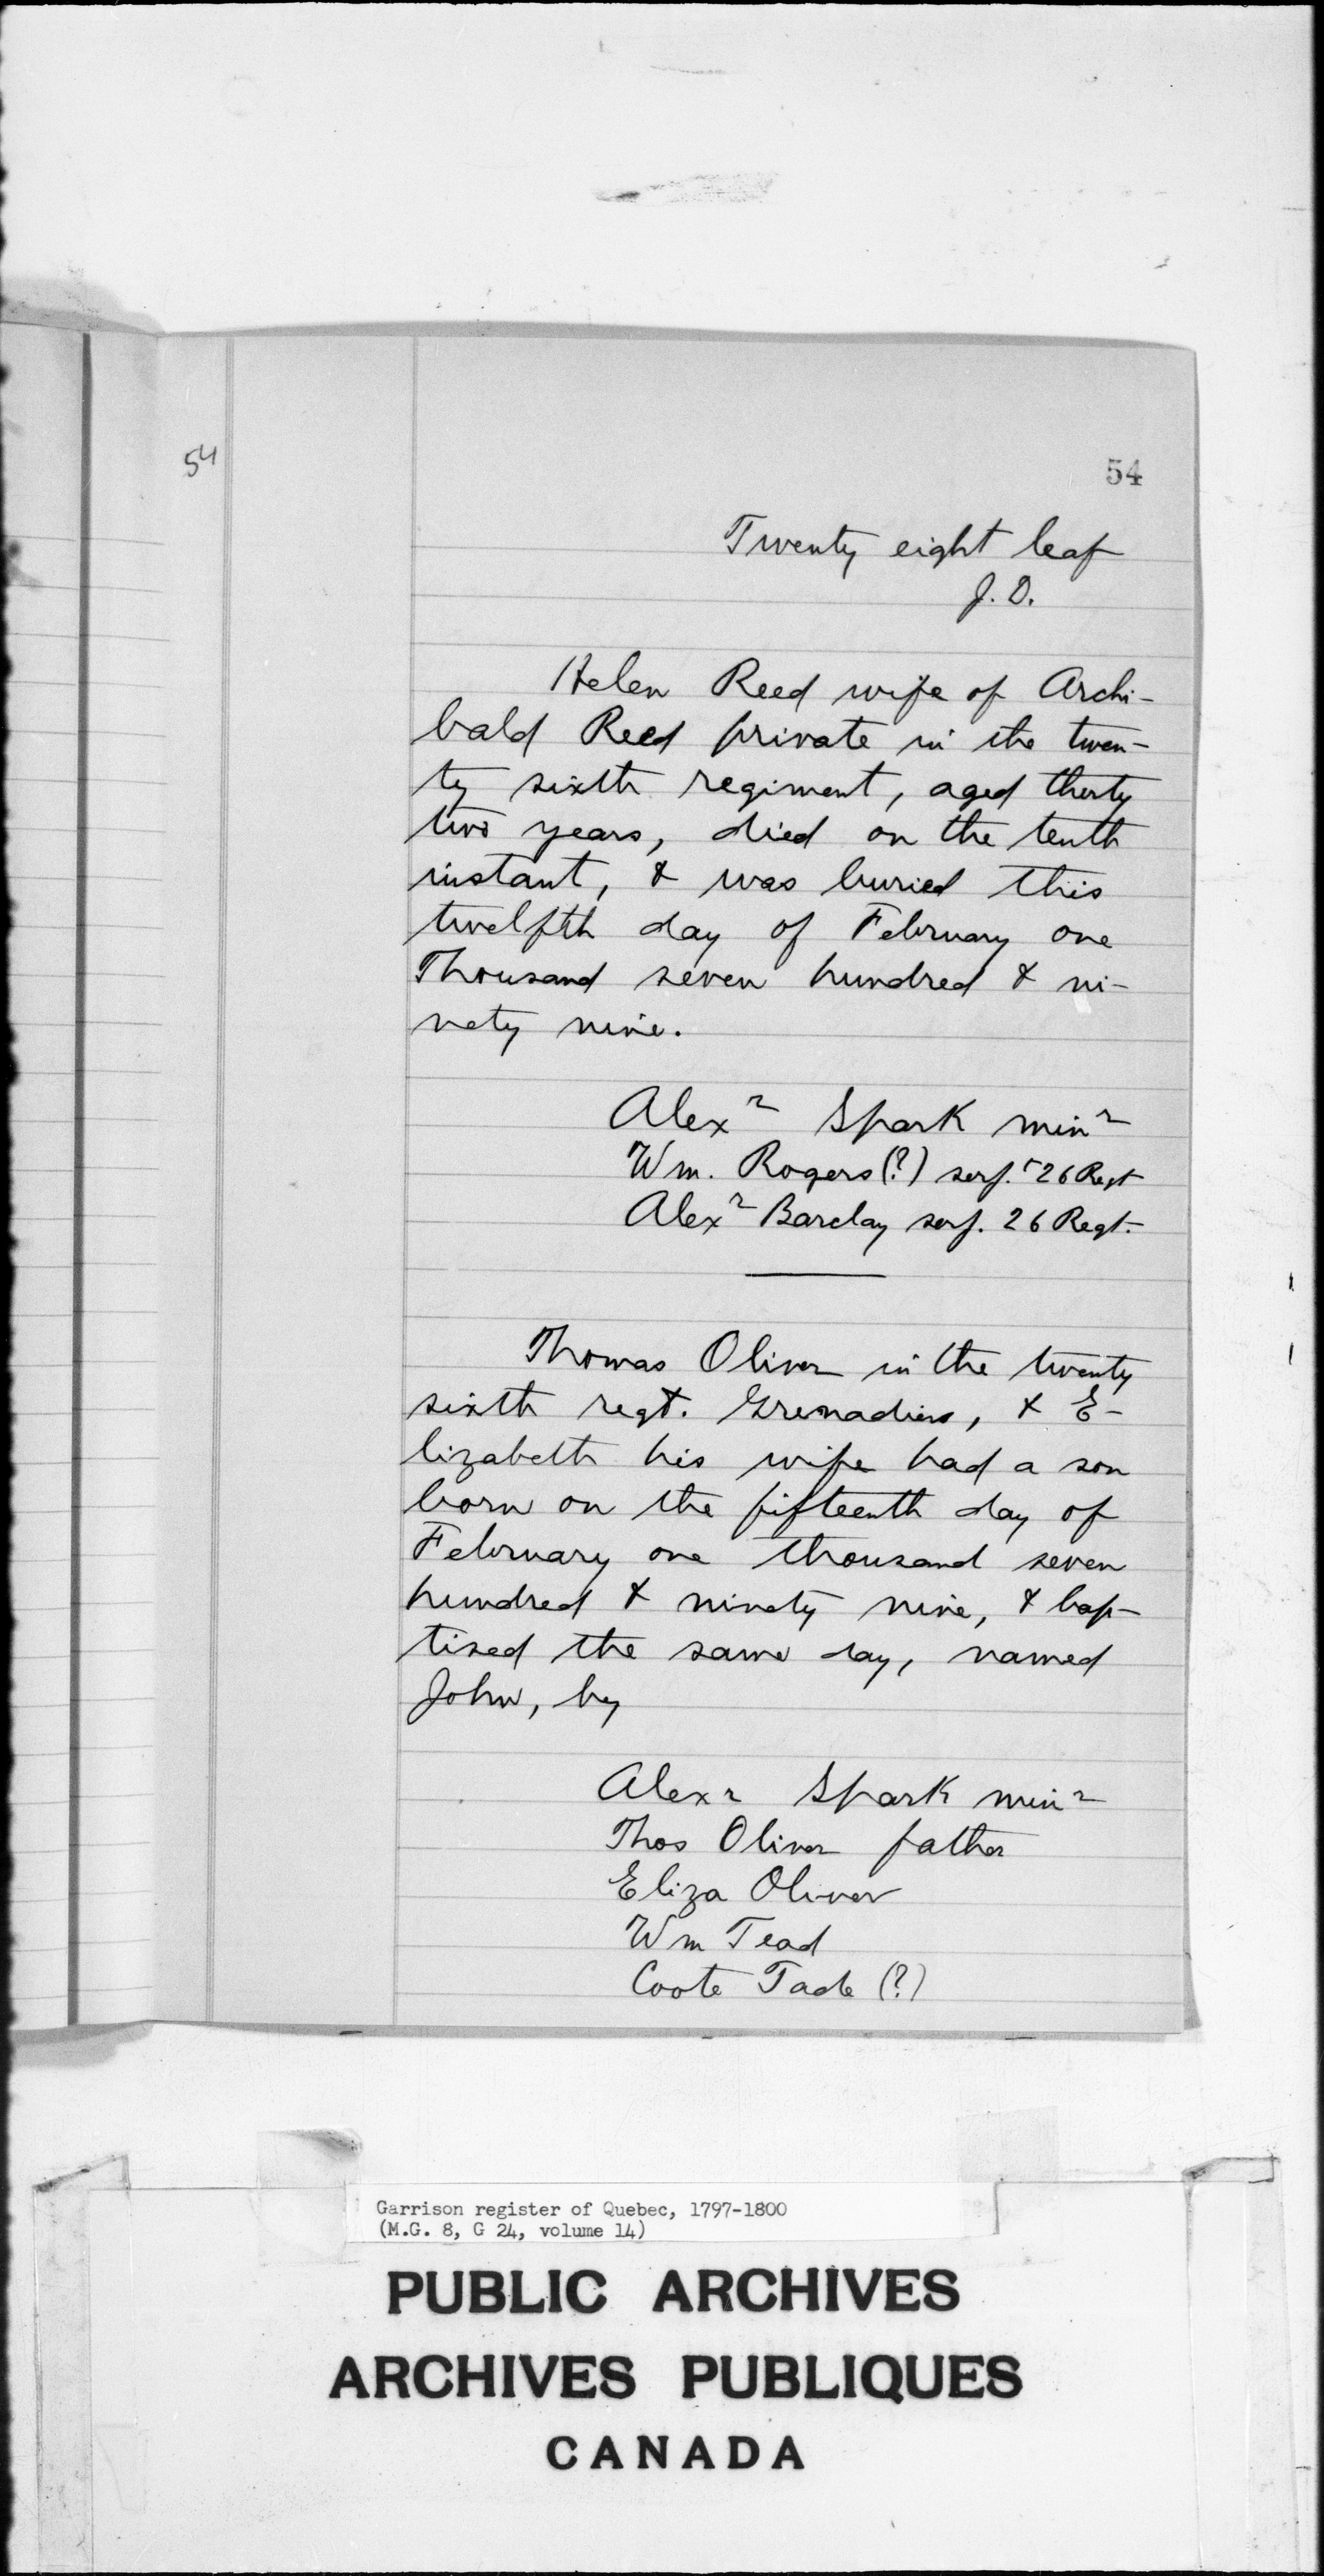 54
54
Twenty eight leaf
J. D.
Helen Reed wife of Archi-
bald Reed private in the twen-
ty sixth regiment, aged therty
two years, died on the tenth
instant, & was buried this
twelfth day of February one
Thousand seven hundred & ni-
nety nine.
Alexr Spark minr
Wm. Rogers (?) serj. 26 Regt
Alexr Barclay serj. 26 Regt.
Thomas Oliver in the twenty
sixth regt. Grenadiers, & E-
lizabeth his wife had a son
born on the fifteenth day of
February one thousand seven
hundred & ninety nine, & bap-
tised the same day, named
John, by
Alexr Spark minr
Thos Oliver father
Eliza Oliver
Wm Tead
Coote Tade (?)
Garrison register of Quebec, 1797-1800
(M.G. 8, G 24, volume 14)
PUBLIC ARCHIVES
ARCHIVES PUBLIQUES
CANADA